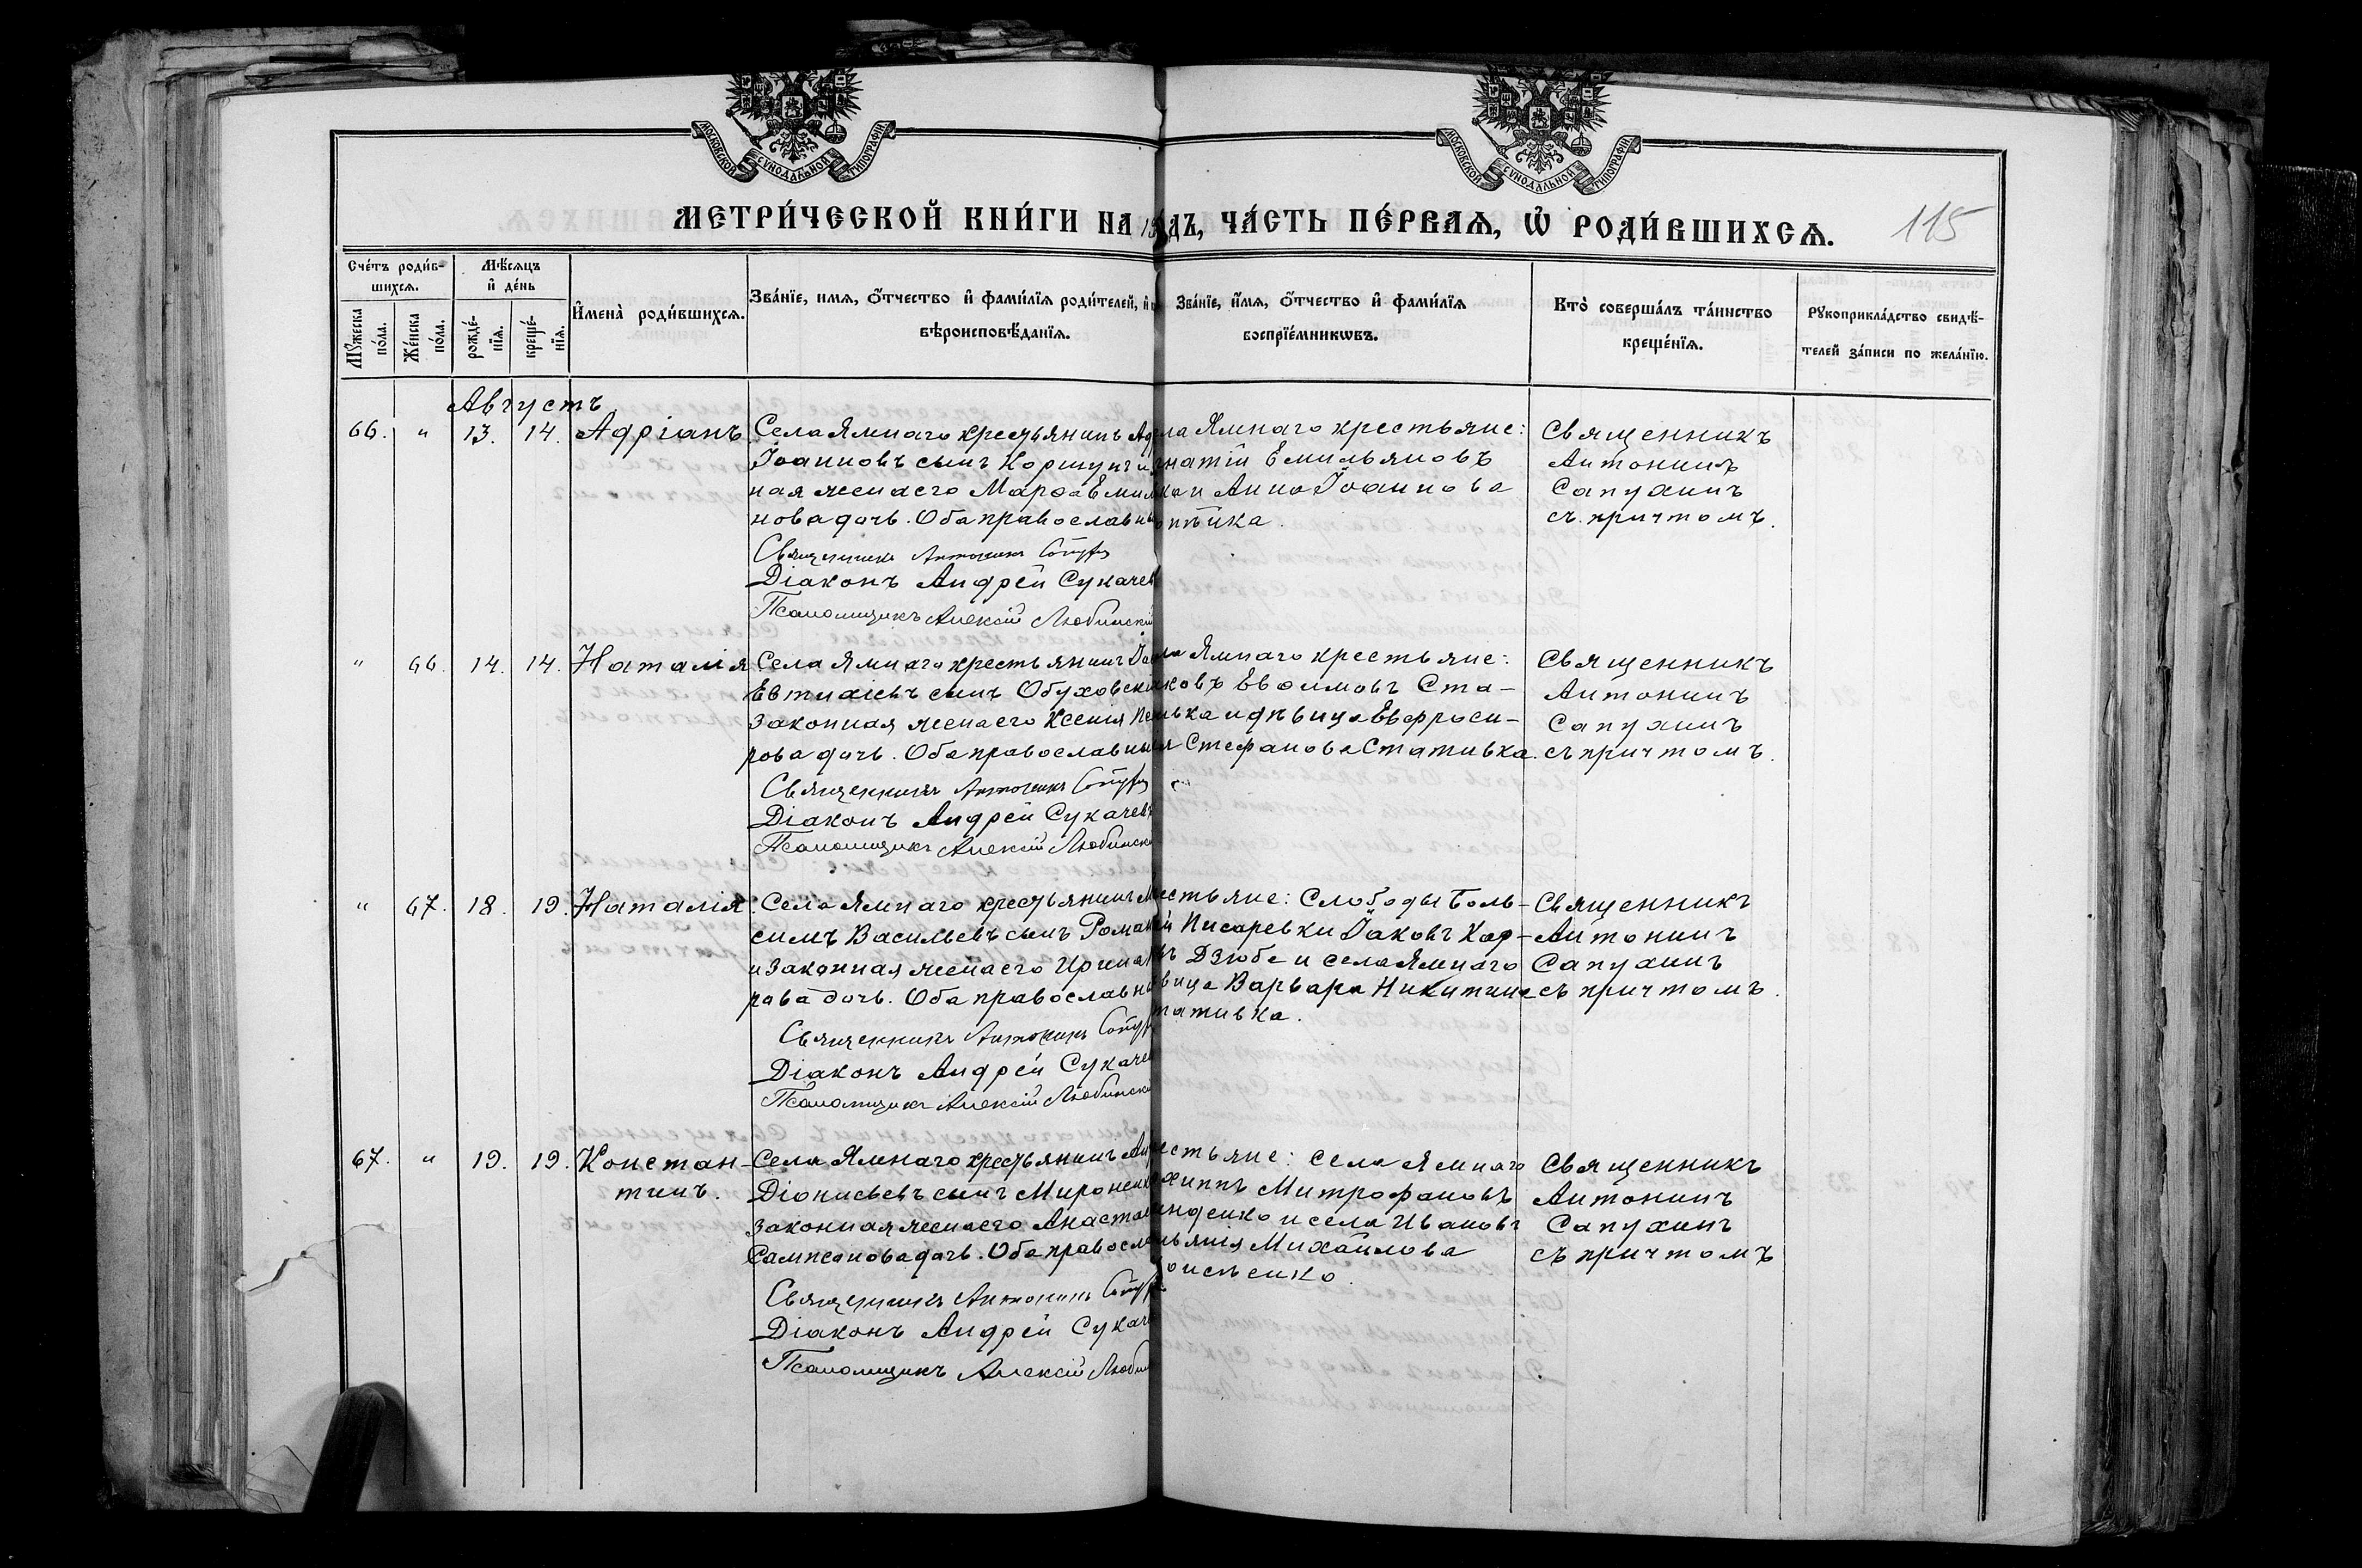 МОСКОВСКОЙ СѴНОДАЛЬНОЙ ТИПОГРАФІИ
МОСКОВСКОЙ СѴНОДАЛЬНОЙ ТИПОГРАФІИ
МЕТРИ́ЧЕСКОЙ КНИ́ГИ НА
ДЪ, ЧА́СТЬ ПЕ́РВАѦ, Ѡ҆ РОДИ́ВШИХСѦ.
115
Сче́тъ роди́в-
шихсѧ.
Мѣ́сѧцъ
и҆ де́нь
Мꙋ́жеска
по́ла.
Же́нска
по́ла.
рожде́-
нїѧ.
креще́-
нїѧ.
И҆мена̀ роди́вшихсѧ.
Зва́нїе, имѧ, о҆́тчество и҆ фами́лїѧ роди́телей, и҆
вѣроисповѣ́данїѧ.
Зва́нїе, и҆́мѧ, о҆́тчество и҆ фами́лїѧ
воспрїе́мникѡвъ.
Кто̀ соверша́лъ та́инство
креще́нїѧ.
Рꙋкоприкла́дство свидѣ́-
телей за́писи по жела́нїю.
Августъ
66. " 13. 14. Адріанъ.
Села Ямнаго крестьянинъ
Іоанновъ сынъ Коршунъ и
ная жена его Марѳа
нова дочь. Оба православны
Священникъ Антонинъ
Діаконъ Андрей Сукачев
Псаломщикъ Алексій Любинскій
ла Ямнаго крестьяне:
гнатій Емильяновъ
и Анна Іоаннова
пѣйка.
Священникъ
Антонинъ
Сапухинъ
съ причтомъ.
" 66. 14. 14. Наталія
Села Ямнаго крестьянинъ
Евтихіевъ сынъ Обуховскій
законная жена его Ксенія
рова дочь. Оба православны
Священникъ Антонинъ
Діаконъ Андрей Сукачевъ
Псаломщикъ Алексій Любинскі
ла Ямнаго крестьяне:
ковъ Евѳимовъ Ста-
ивка и дѣвица Евфроси-
я Стефанова Стативка.
Священникъ
Антонинъ
Сапухинъ
съ причтомъ.
" 67. 18. 19. Наталія.
Села Ямнаго крестьянинъ
симъ Васильевъ сынъ Роман
и законная жена его Ирина
рова дочь. Оба православны
Священникъ Антонинъ
Діаконъ Андрей Сукачев
Псаломщикъ Алексій Любинскі
естьяне: Слободы Боль-
й Писаревки Іаковъ Кар-
въ Дзюба и села Ямнаго
вица Варвара Никитина
тативка.
Священникъ
Антонинъ
Сапухинъ
съ причтомъ.
67. " 19. 19. Констан-
тинъ.
Села Ямнаго крестьянинъ
Діонисьевъ сынъ Мироненко
законная жена его Анаста
Сампсонова дочь. Оба правосла
Священникъ Антонинъ
Діаконъ Андрей Сукаче
Псаломщикъ Алексій Любин
естьяне: села Ямнаго
хиппъ Митрофановъ
нденко и села Ивановъ
Михайлова
оисѣенко.
Священникъ
Антонинъ
Сапухинъ
съ причтомъ